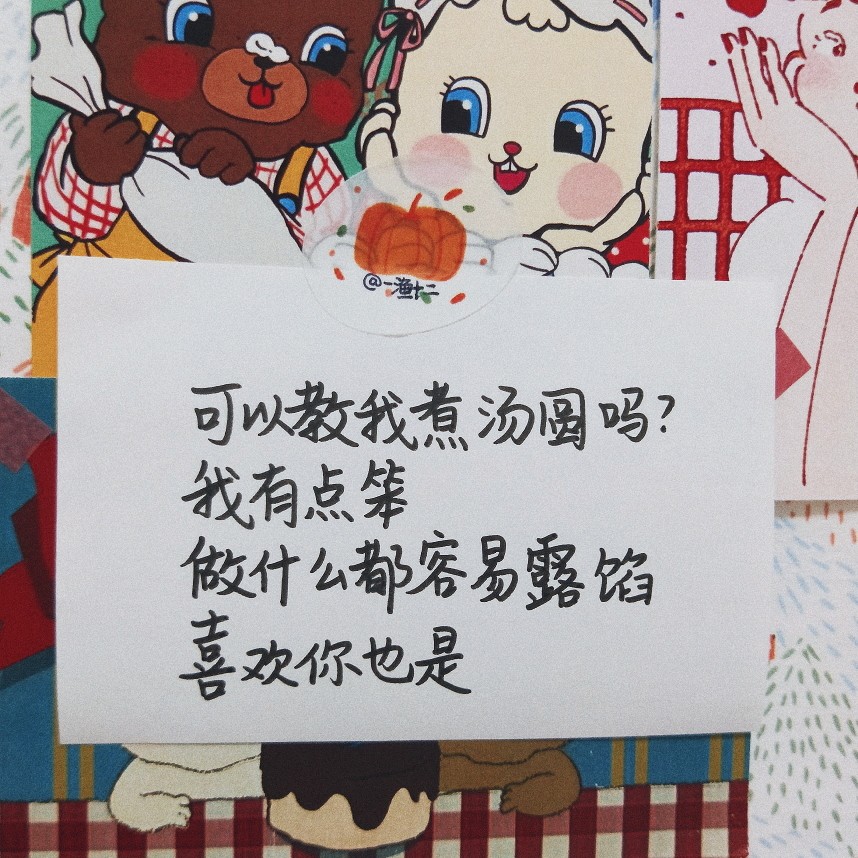 @一渔十二
可以教我煮汤圆吗?
我有点笨
做什么都容易露馅
喜欢你也是